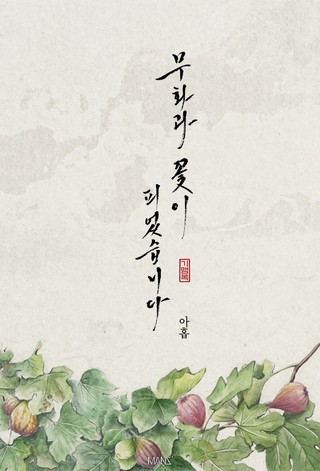 무화과 꽃이
피었습니다
아홉